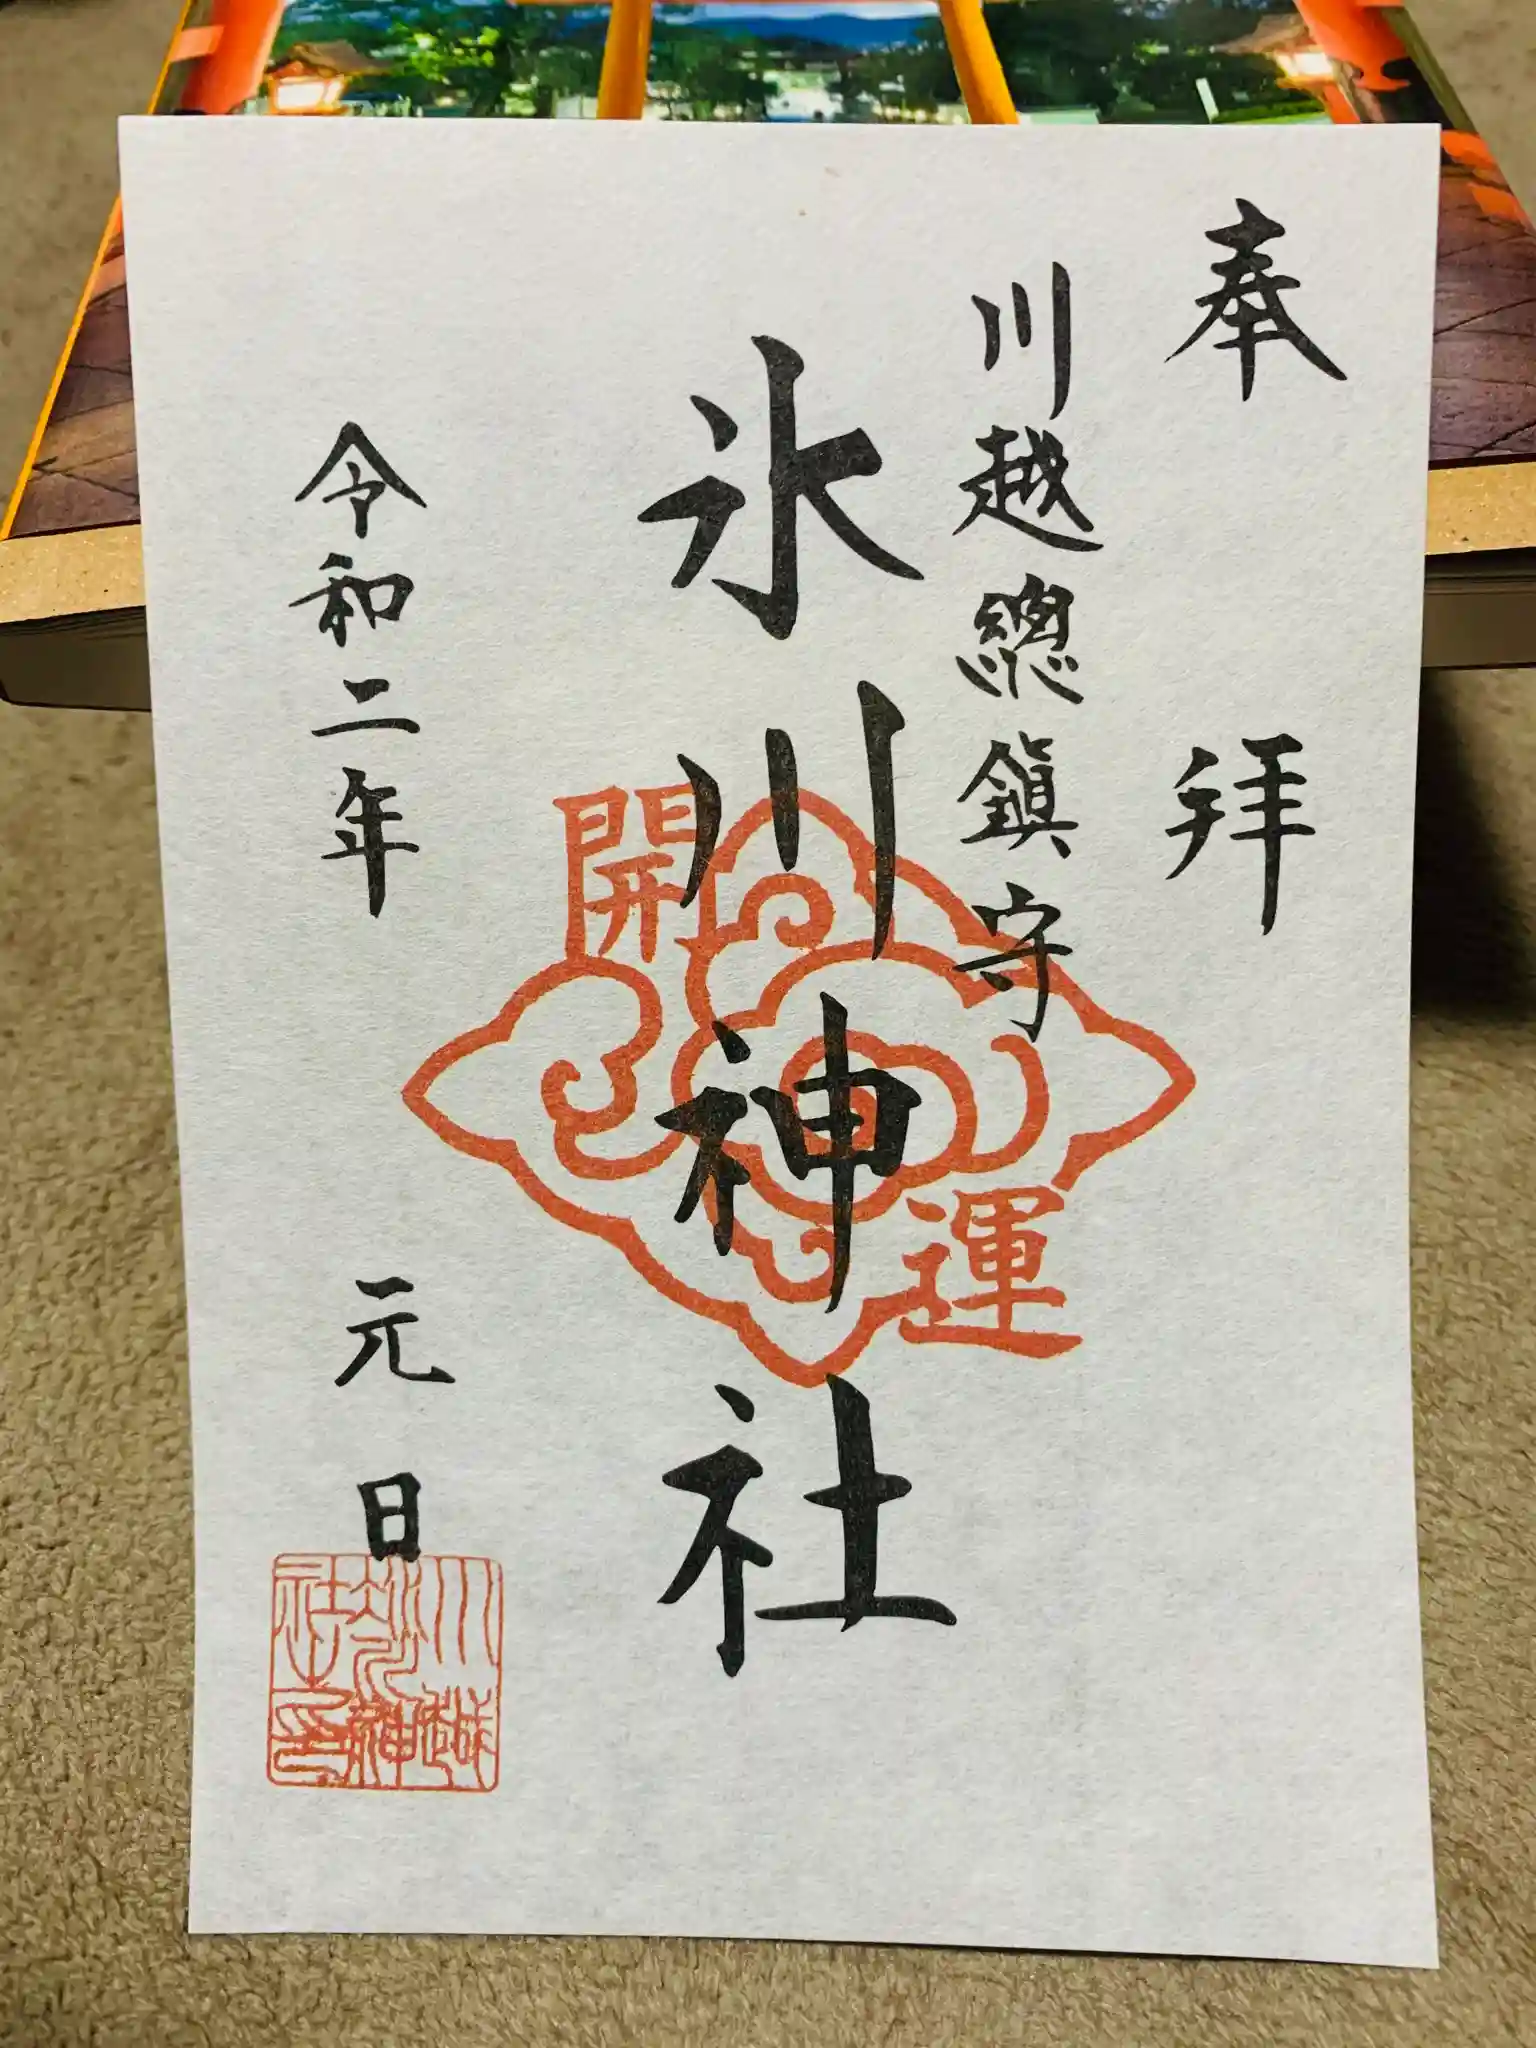 奉拝
川越總鎮守
氷川神社
開運
令和二年 元日
川越氷川神社印